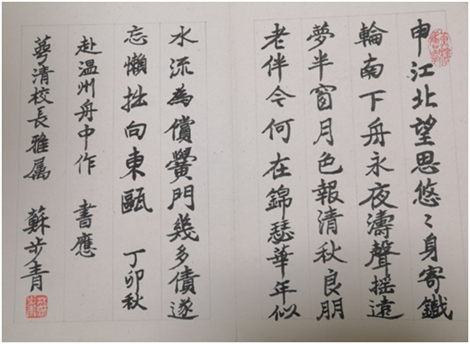 申江北望思悠〻身寄鐵
輪南下舟永夜濤聲摇遠
夢半窗月色報清秋良朋
老伴今何在錦瑟華年似
水流為償黌門幾多債遂
忘懶拙向東甌 丁卯秋
赴温州舟中作 書應
蕚清校長雅属 蘇步青